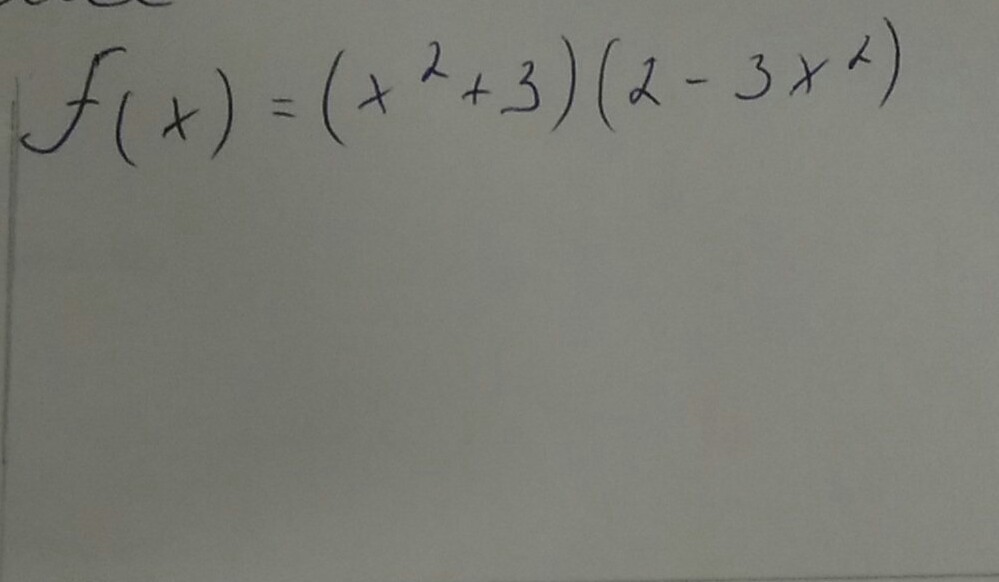 f(x) = (x² + 3)(2 - 3x²)